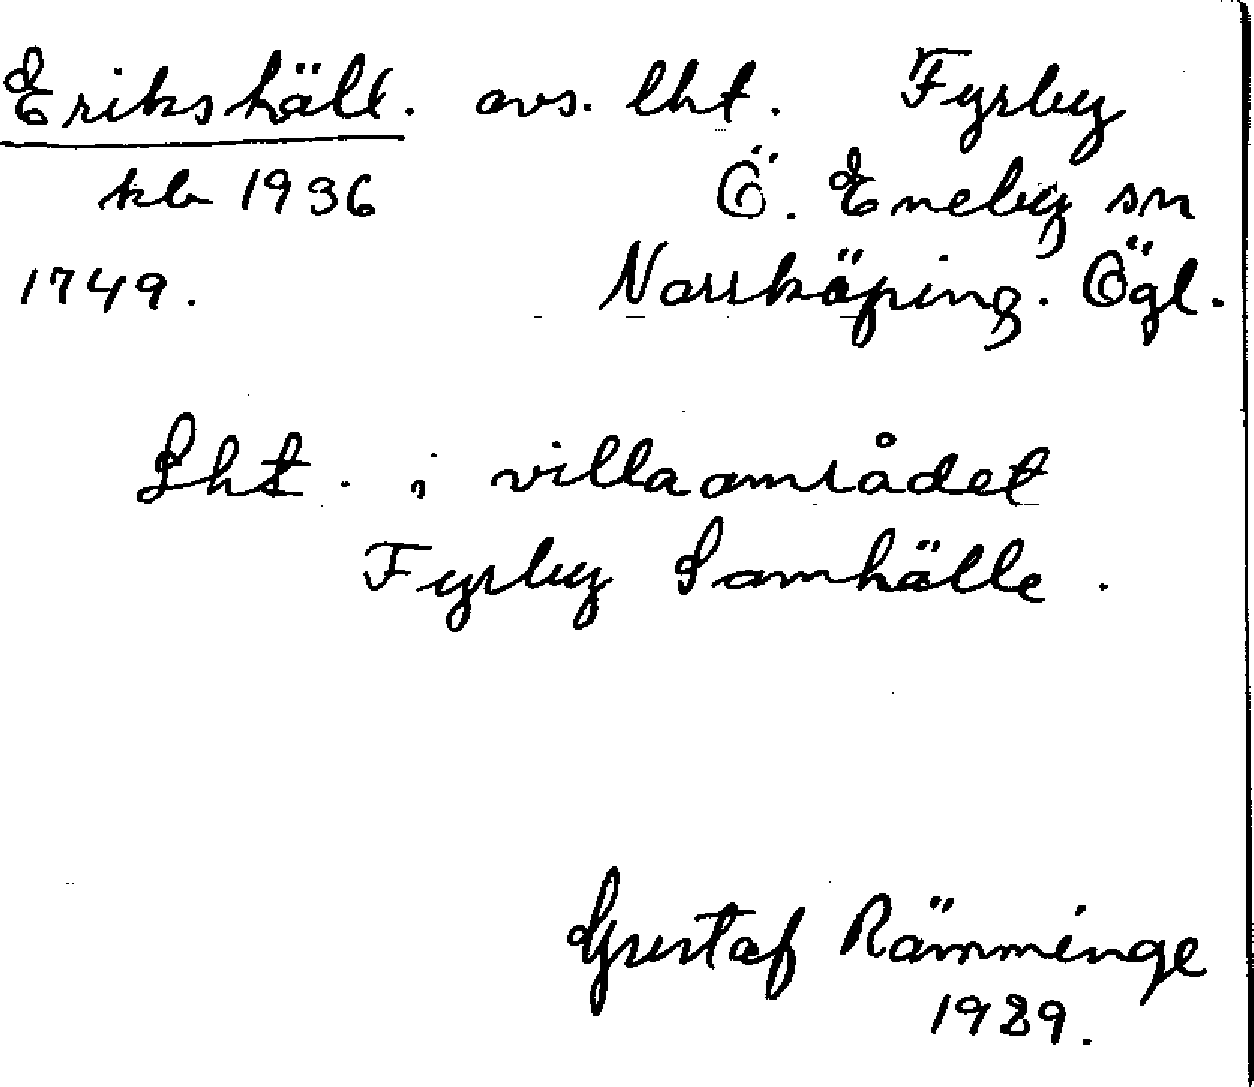 Erikshäll. avs. lht. Fyrby
kb 1936 Ö. Eneby sn
1749. Norrköping. Ögl.
Lht. i villaområdet
Fyrby Samhälle.
Gustaf Rämminge
1989.